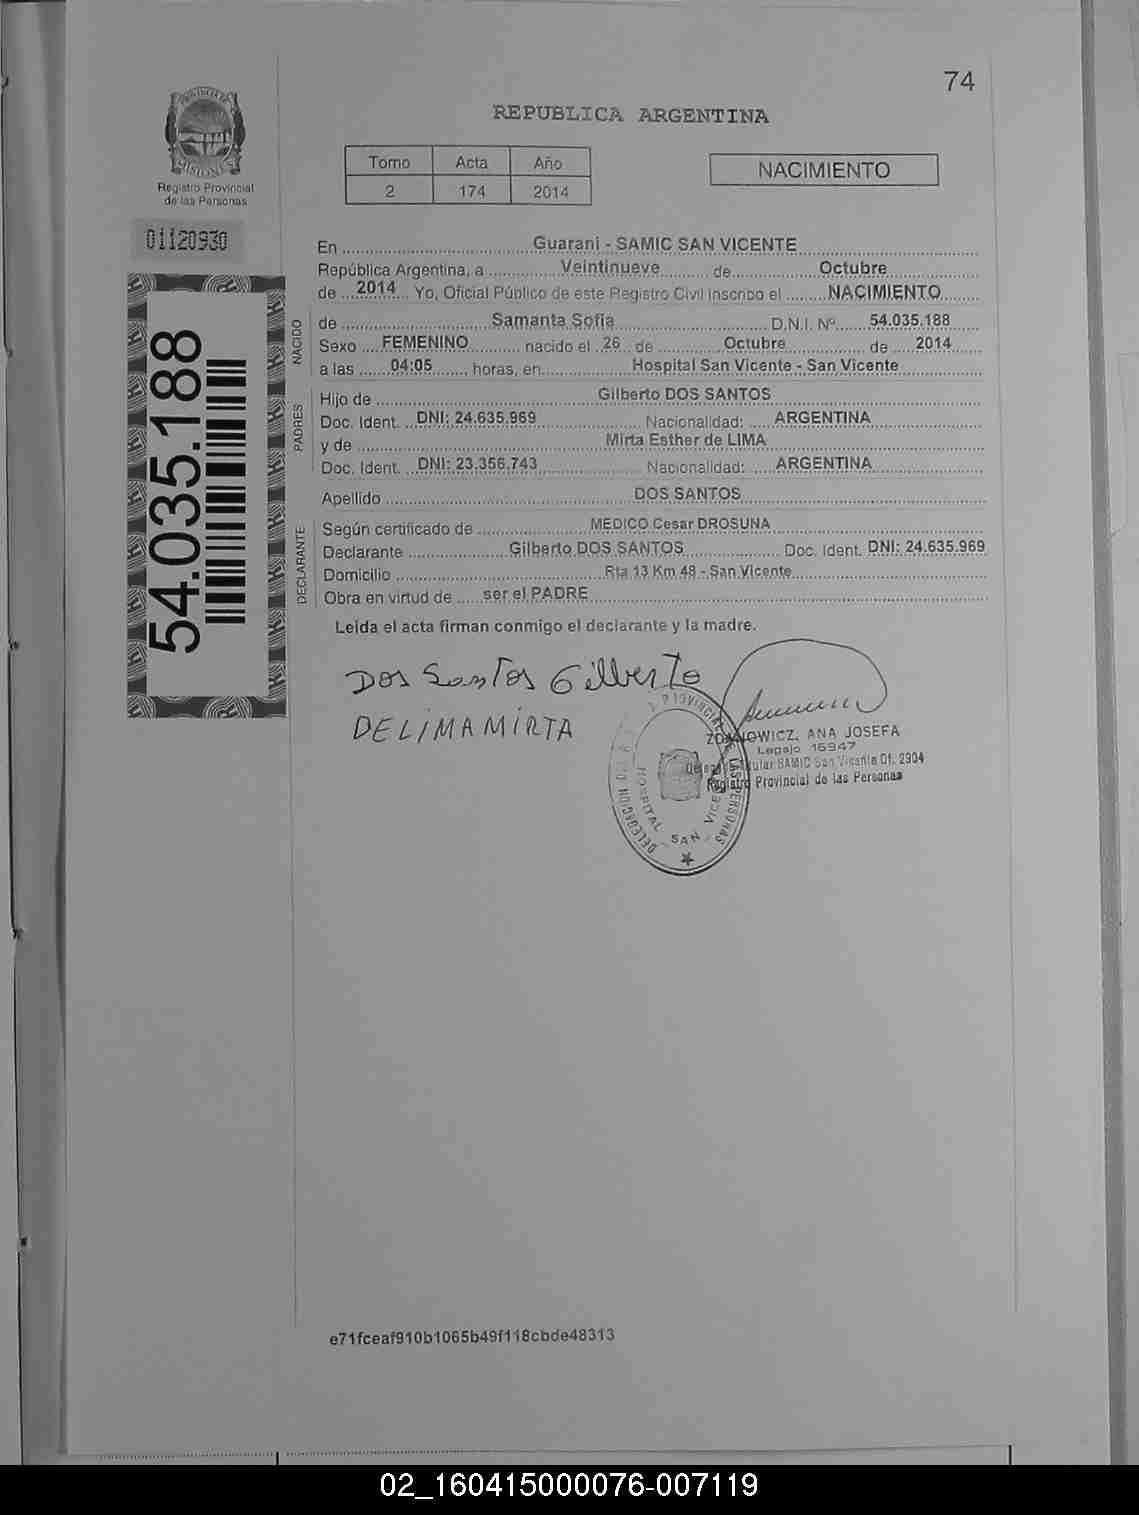 74
REPUBLICA ARGENTINA
PROVINCIA DE MISIONES
Registro Provincial
de las Personas
01120930
54.035.188
Tomo Acta Año
2 174 2014
NACIMIENTO
En Guarani - SAMIC SAN VICENTE
República Argentina, a Veintinueve de Octubre
de 2014 Yo, Oficial Público de este Registro Civil inscribo el NACIMIENTO
NACIDO
de Samanta Sofia D.N.I. Nº 54.035.188
Sexo FEMENINO nacido el 26 de Octubre de 2014
a las 04:05 horas, en Hospital San Vicente - San Vicente
PADRES
Hijo de Gilberto DOS SANTOS
Doc. Ident. DNI: 24.635.969 Nacionalidad: ARGENTINA
y de Mirta Esther de LIMA
Doc. Ident. DNI: 23.356.743 Nacionalidad: ARGENTINA
Apellido DOS SANTOS
DECLARANTE
Según certificado de MEDICO Cesar DROSUNA
Declarante Gilberto DOS SANTOS Doc. Ident. DNI: 24.635.969
Domicilio Rta 13 Km 48 - San Vicente
Obra en virtud de ser el PADRE
Leida el acta firman conmigo el declarante y la madre.
Dos Santos Gilberto
DELIMA MIRTA
ANA JOSEFA
Legajo 16947
SAMIC San Vicente Of. 2904
Registro Provincial de las Personas
HOSPITAL SAN VICENTE
e71fceaf910b1065b49f118cbde48313
02_160415000076-007119